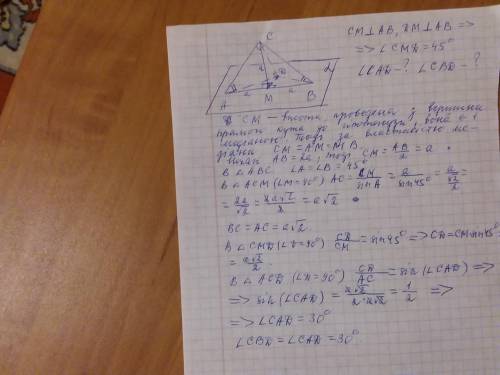 C
α
D
A
M
B
a
a
a
CM⊥AB, DM⊥AB =>
=> ∠CMD = 45°
∠CAD - ? ∠CBD - ?
CM – висота, проведена з вершини
прямого кута до гіпотенузи, вона є і
медіаною. Тоді за властивістю ме-
діани CM = AM = MB.
Нехай AB = 2a, тоді CM = AB/2 = a
В ∆ ABC ∠A = ∠B = 45°
В ∆ ACM (∠M = 90°) AC = CM/sinA = a/sin45° = a/(√2/2) =
= 2a/√2 = 2a√2/2 = a√2
BC = AC = a√2.
В ∆ CMD (∠D = 90°) CD/CM = sin45° => CD = CM·sin45° =
= a√2/2.
В ∆ ACD (∠D = 90°) CD/AC = sin(∠CAD) =>
=> sin(∠CAD) = a√2/(2·a√2) = 1/2 =>
=> ∠CAD = 30°
∠CBD = ∠CAD = 30°.